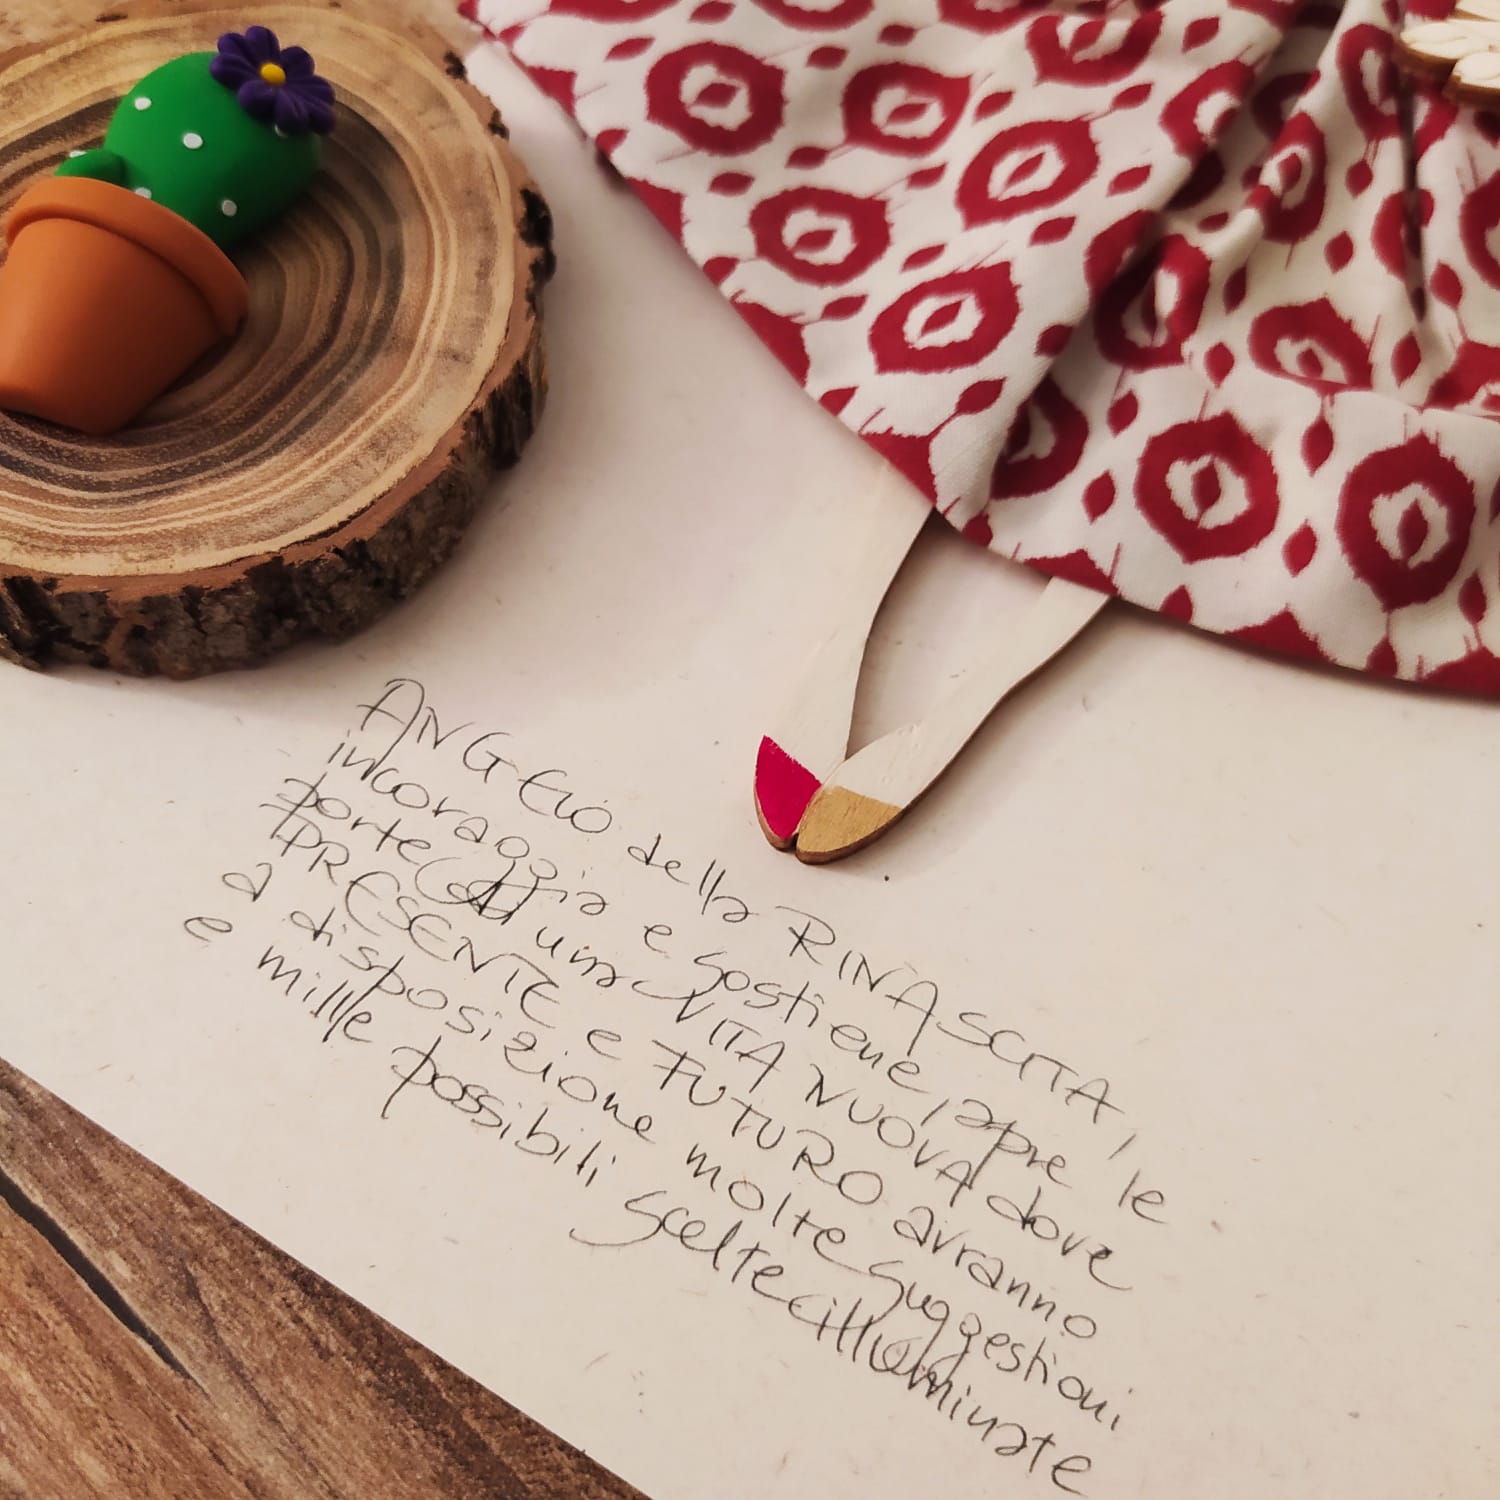 ANGELO della RINASCITA,
incoraggia e sostiene, apre le
porte ad una VITA NUOVA dove
PRESENTE e FUTURO avranno
a disposizione molte suggestioni
e mille possibili scelte illuminate